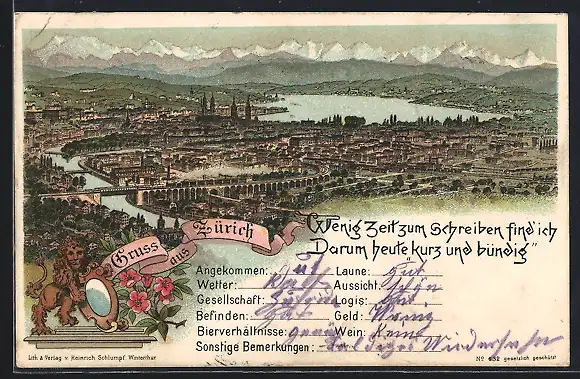 Gruss aus Zürich
"Wenig Zeit zum Schreiben find' ich
Darum heute kurz und bündig"
Angekommen: Gut Laune: Gut
Wetter: Kalt Aussicht: schön
Gesellschaft: Logis:
Befinden: Gut Geld: Wenig
Bierverhältnisse: Wein: Keine
Sonstige Bemerkungen: Baldiges Wiedersehn
Lith. & Verlag v. Heinrich Schlumpf. Winterthur
No 632 gesetzlich geschützt